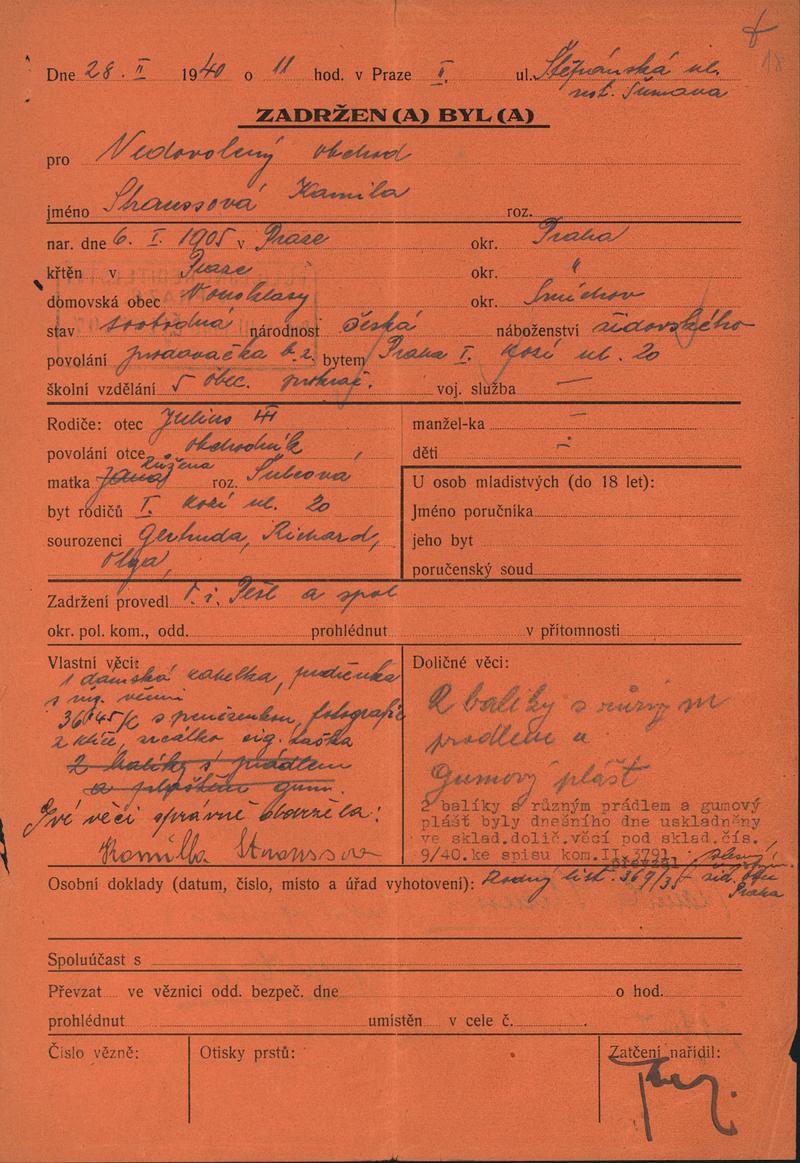 18
Dne 28. II 1940 o 11 hod. v Praze II. ul. Štěpánská ul.
rest. Šumava
ZADRŽEN(A) BYL(A)
pro Nedovolený obchod
jméno Straussová Kamila roz.
nar. dne 6. I. 1905 v Praze okr. Praha
křtěn v Praze okr. "
domovská obec okr. Smíchov
stav svobodná národnost česká náboženství židovského
povolání prodavačka b.z. bytem Praha I. Kozí ul. 20
školní vzdělání 5 obec. voj. služba —
Rodiče: otec Julius
povolání otce obchodník
matka Růžena roz.
byt rodičů I. Kozí ul. 20
sourozenci Gertruda, Richard,
Olga,
manžel-ka —
děti —
U osob mladistvých (do 18 let):
Jméno poručníka
jeho byt
poručenský soud
Zadržení provedl a spol
okr. pol. kom., odd. prohlédnut v přítomnosti
Vlastní věci:
1 dámská kabelka,
s věcmi
s peněženkou, fotografie
2 klíče, zrcátko cig. taška
2 balíky s prádlem
a pláštěm gum.
Své věci správně obdržela:
Kamilla
Doličné věci:
2 balíky s různým
prádlem a
Gumový plášť
2 balíky s různým prádlem a gumový
plášť byly dnešního dne uskladněny
ve sklad.dolič.věcí pod sklad.čís.
9/40.ke spisu kom.II.3791
Osobní doklady (datum, číslo, místo a úřad vyhotovení): Rodný list. 369/35 žid. obec
Praha
Spoluúčast s
Převzat ve věznici odd. bezpeč. dne o hod.
prohlédnut umístěn v cele č. .
Číslo vězně:
Otisky prstů:
Zatčení nařídil: